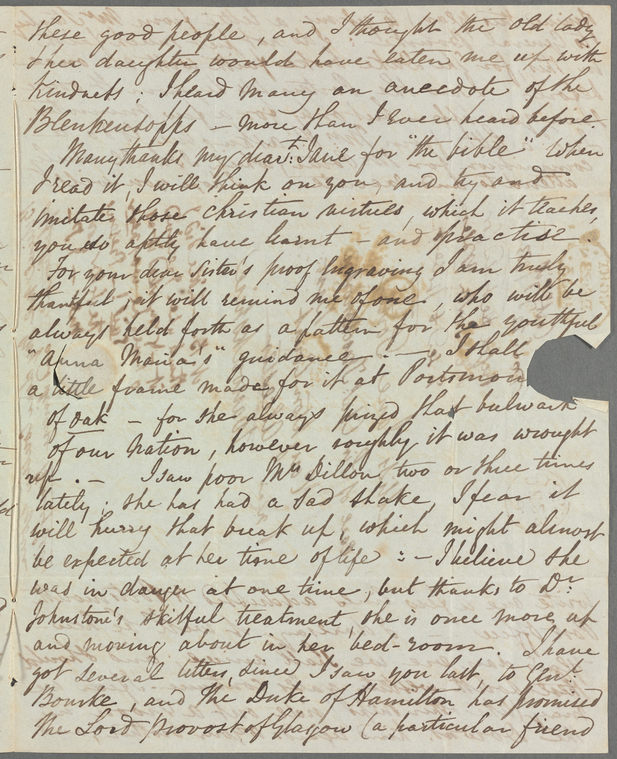 these good people, and I thought the old lady
& her daughter would have eaten me up with
kindness; I heard many an anecdote of the
Blenkensopps – more than I ever heard before.
Many thanks my dear Jane for "the bible" When
I read it, I will think on you, and try and
imitate those Christian virtues, which it teaches,
you so aptly have learnt – and practise.
For your dear Sister's proof Engraving I am truly
thankful, it will remind me of one, who will be
always held forth as a pattern for the youthful
"Anna Maria's" guidance. – I shall
a little frame made for it at Portsmou
of oak – for she always prized that bulwark
of our Nation, however roughly it was wrought
up. – I saw poor Mrs Dillon, two or three times
lately. She has had a sad shake, I fear it
will hurry that break up, which might almost
be expected at her time of life :– I believe she
was in danger at one time, but thanks to Dr.
Johnston's skilful treatment she is once more up
and moving about in her bed-room. I have
got several letters, since I saw you last, to Genl.
Bourke, and The Duke of Hamilton has promised
The Lord Provost of Glasgow (a particular friend